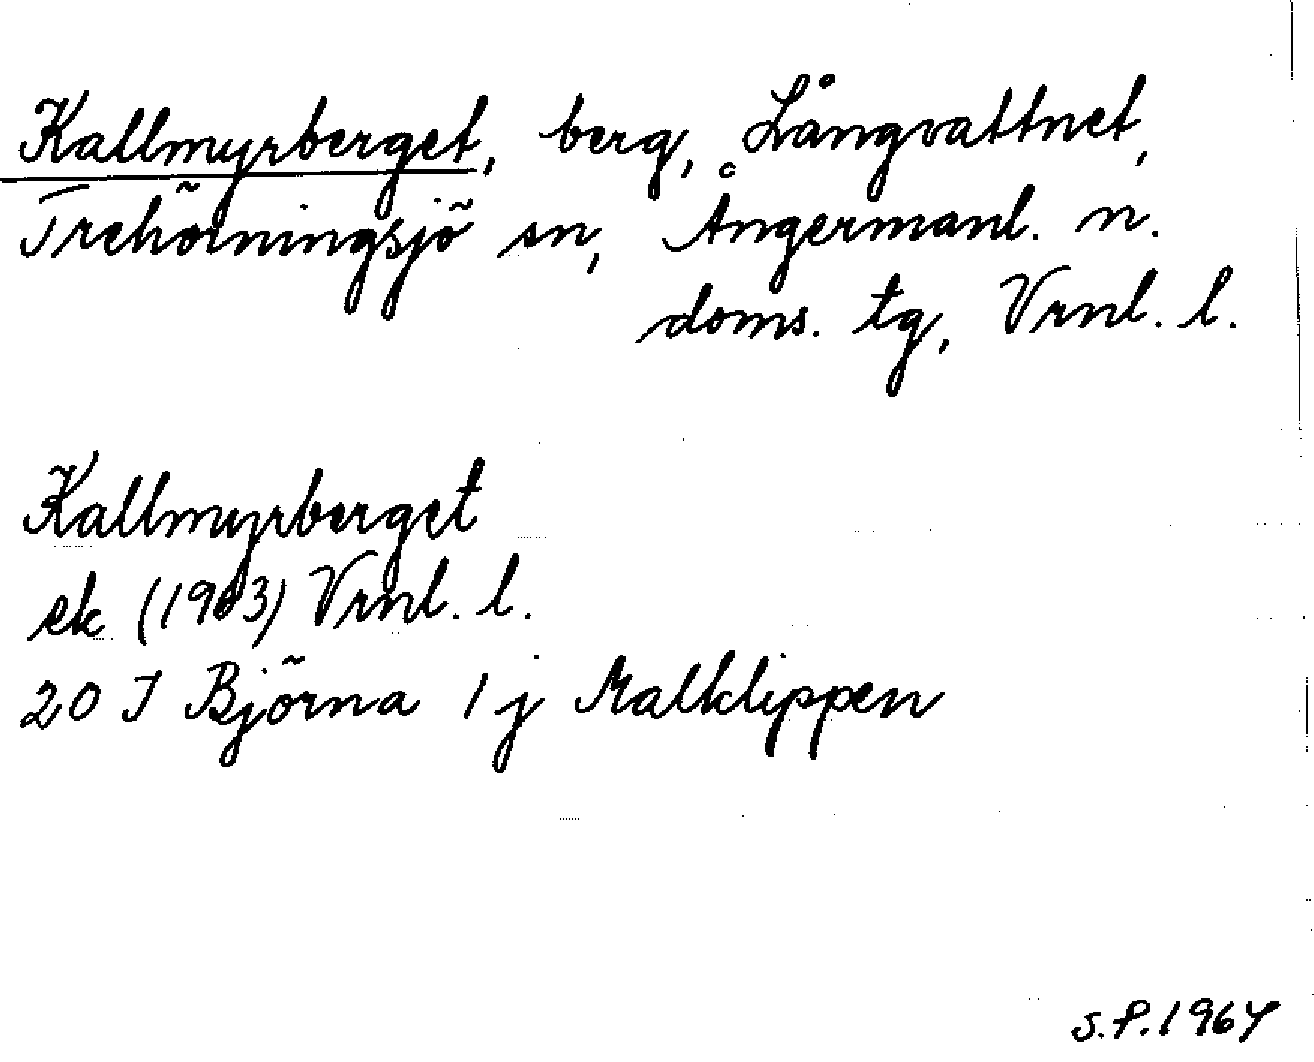 Kallmyrberget, berg, Långvattnet,
Trehörningsjö sn, Ångermanl. n.
doms. tg, Vrnl. l.
Kallmyrberget
ek (1963) Vrnl. l.
20 I Björna 1 j Malklippen
S.P. 1967